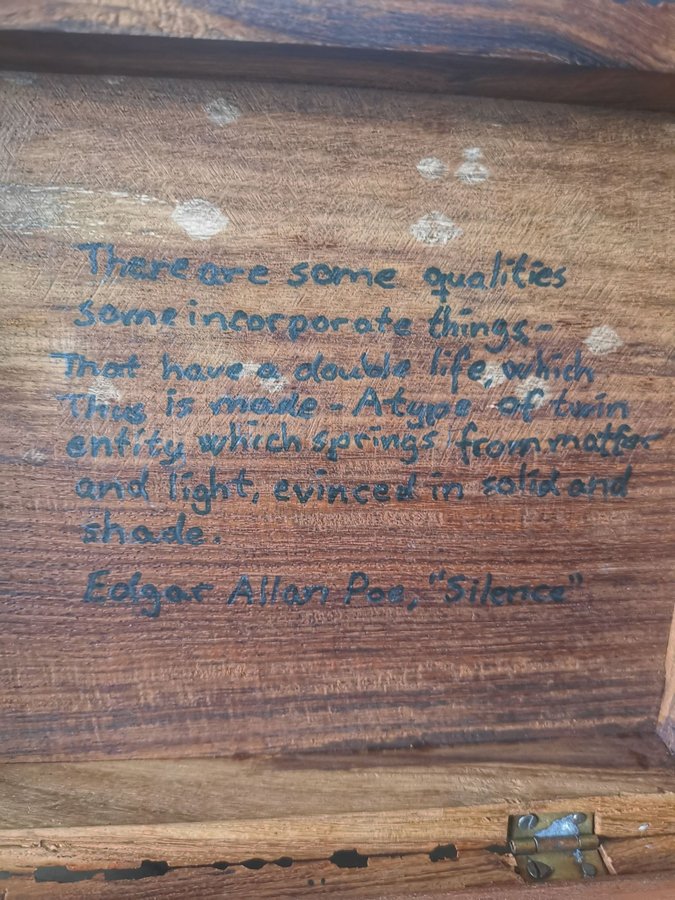 There are some qualities
some incorporate things-
That have a double life, which
Thus is made - A type of twin
entity which springs from matter
and light, evinced in solid and
shade.
Edgar Allan Poe, "Silence"